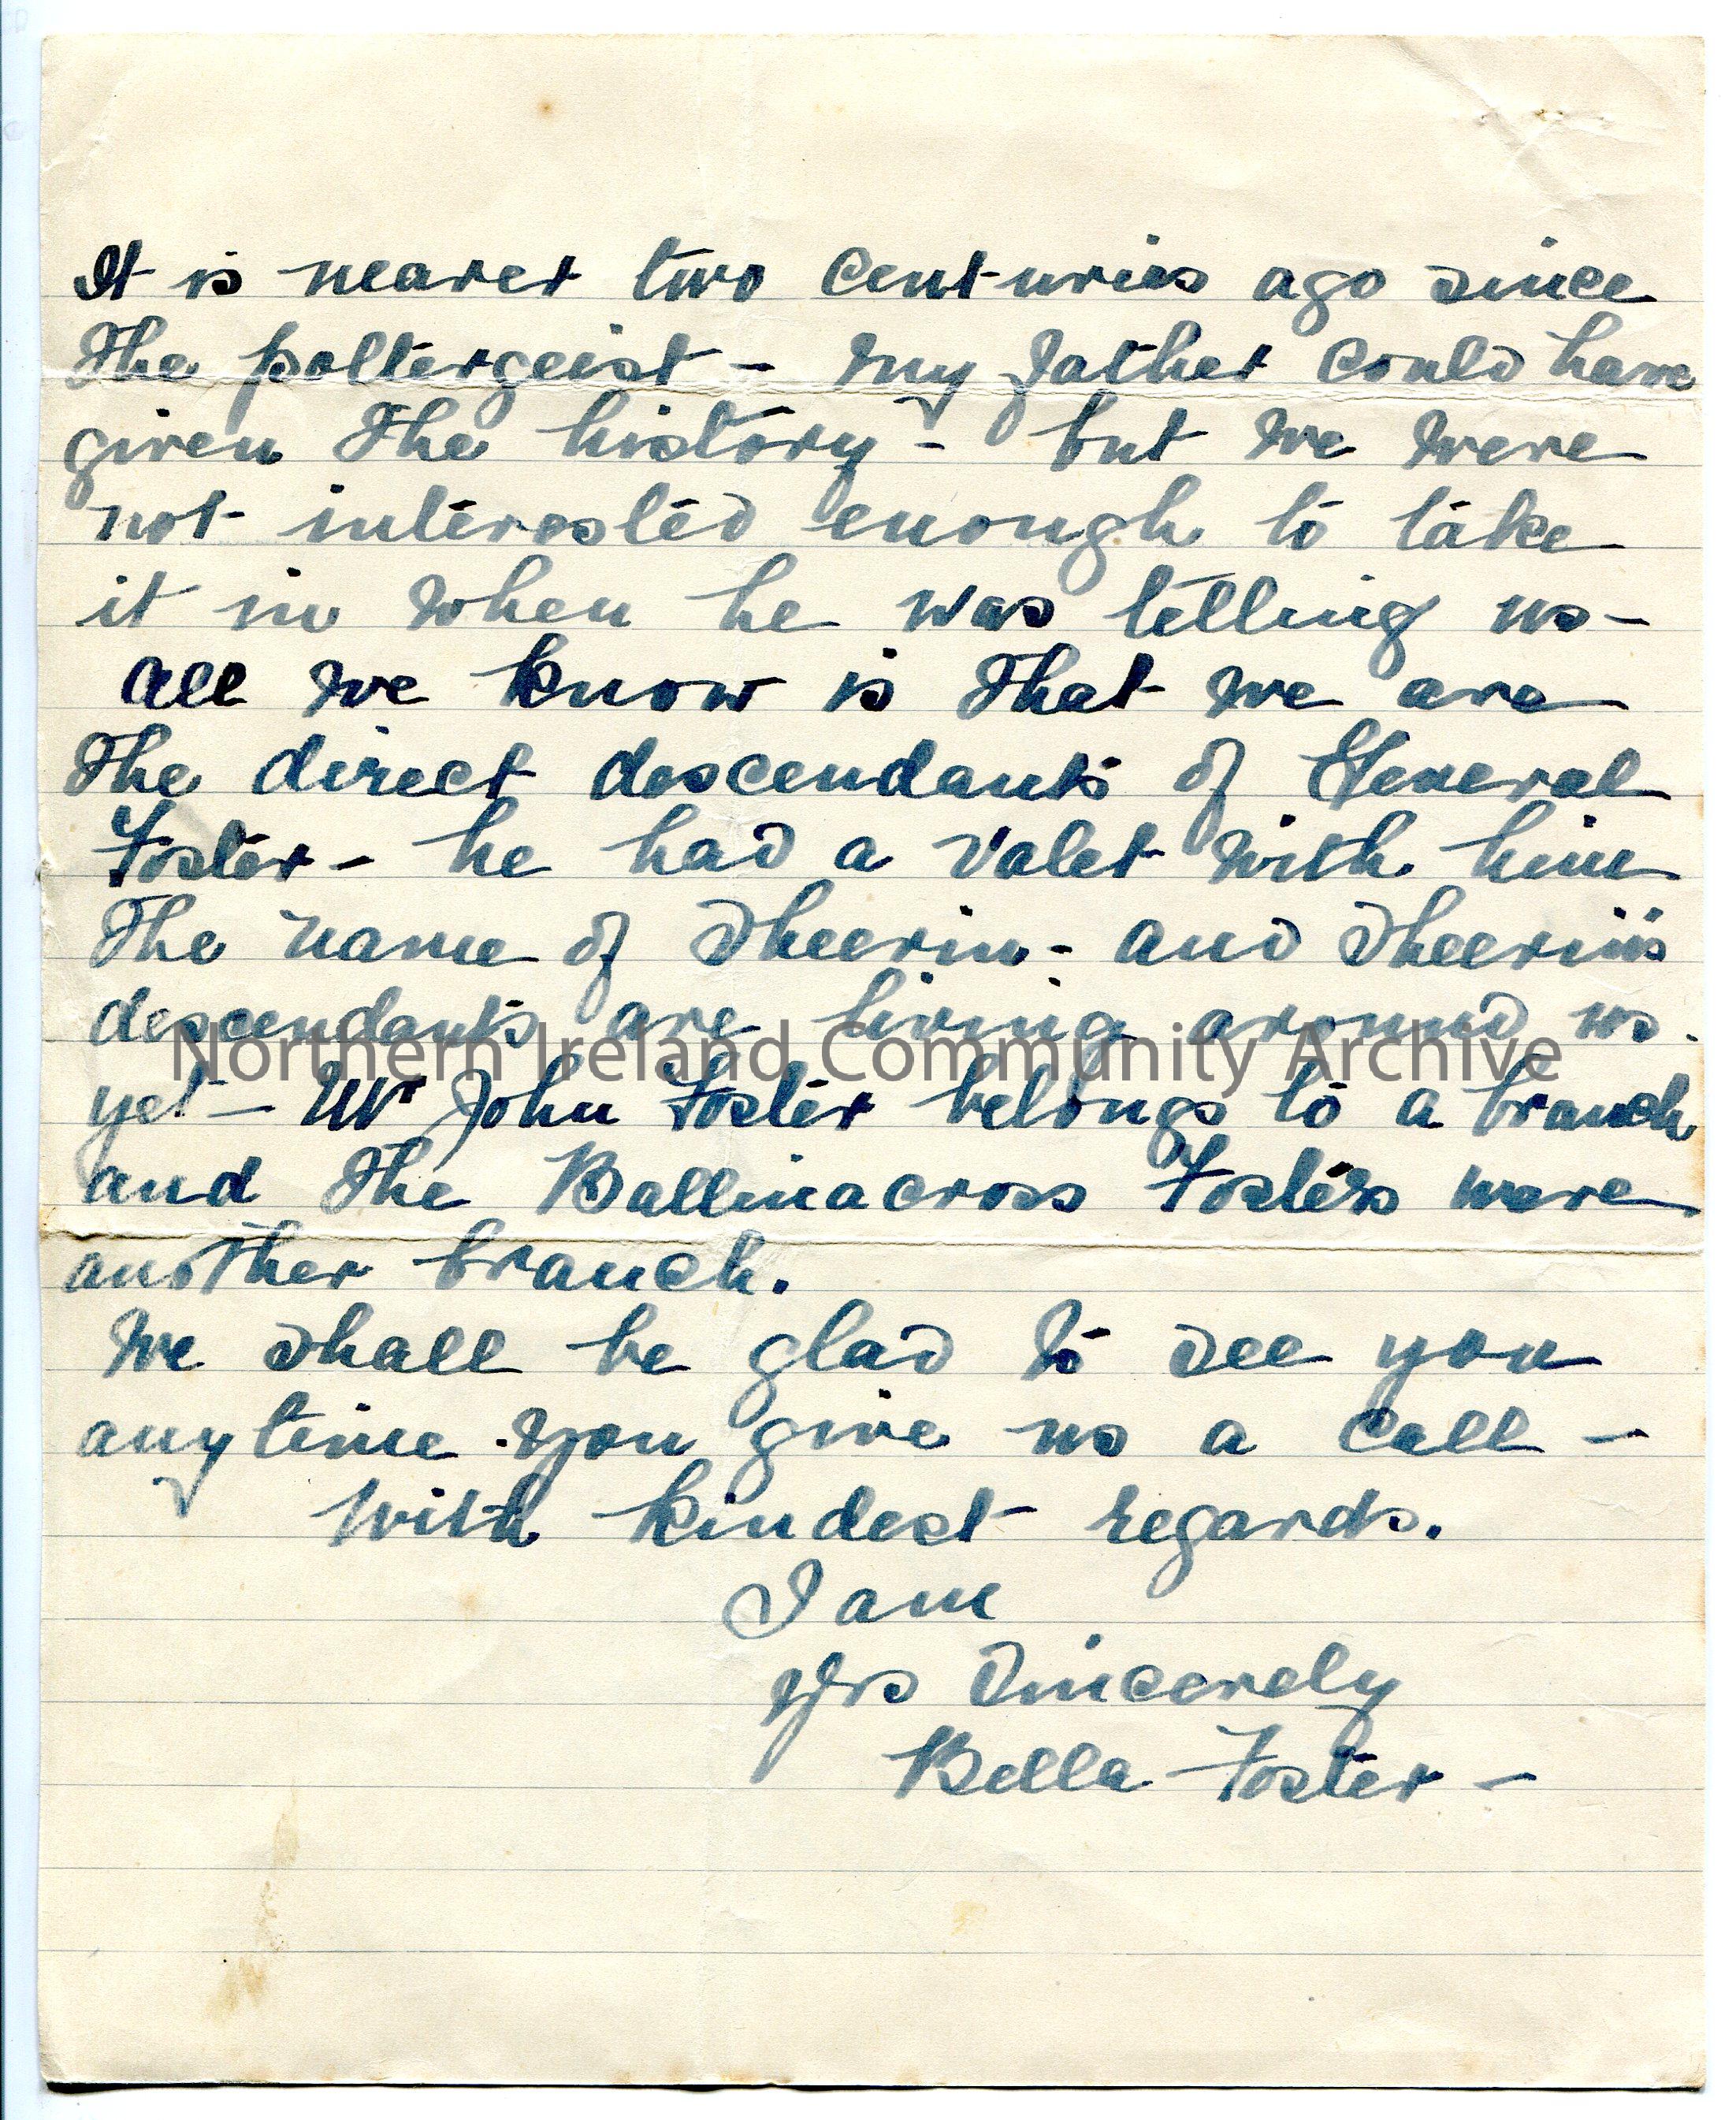 It is nearer two centuries ago since
the poltergeist - my father could have
given the history - but we were
not interested enough to take
it in when he was telling us -
all we know is that we are
the direct descendants of General
Foster - he had a valet with him
the name of Sheerin - and Sheerin's
descendants are living around us
Northern Ireland Community Archive
yet - Mr John Foster belongs to a branch
and the Ballinacross Fosters were
another branch.
We shall be glad to see you
anytime you give us a call -
With kindest regards.
I am
Yrs Sincerely
Bella Foster -